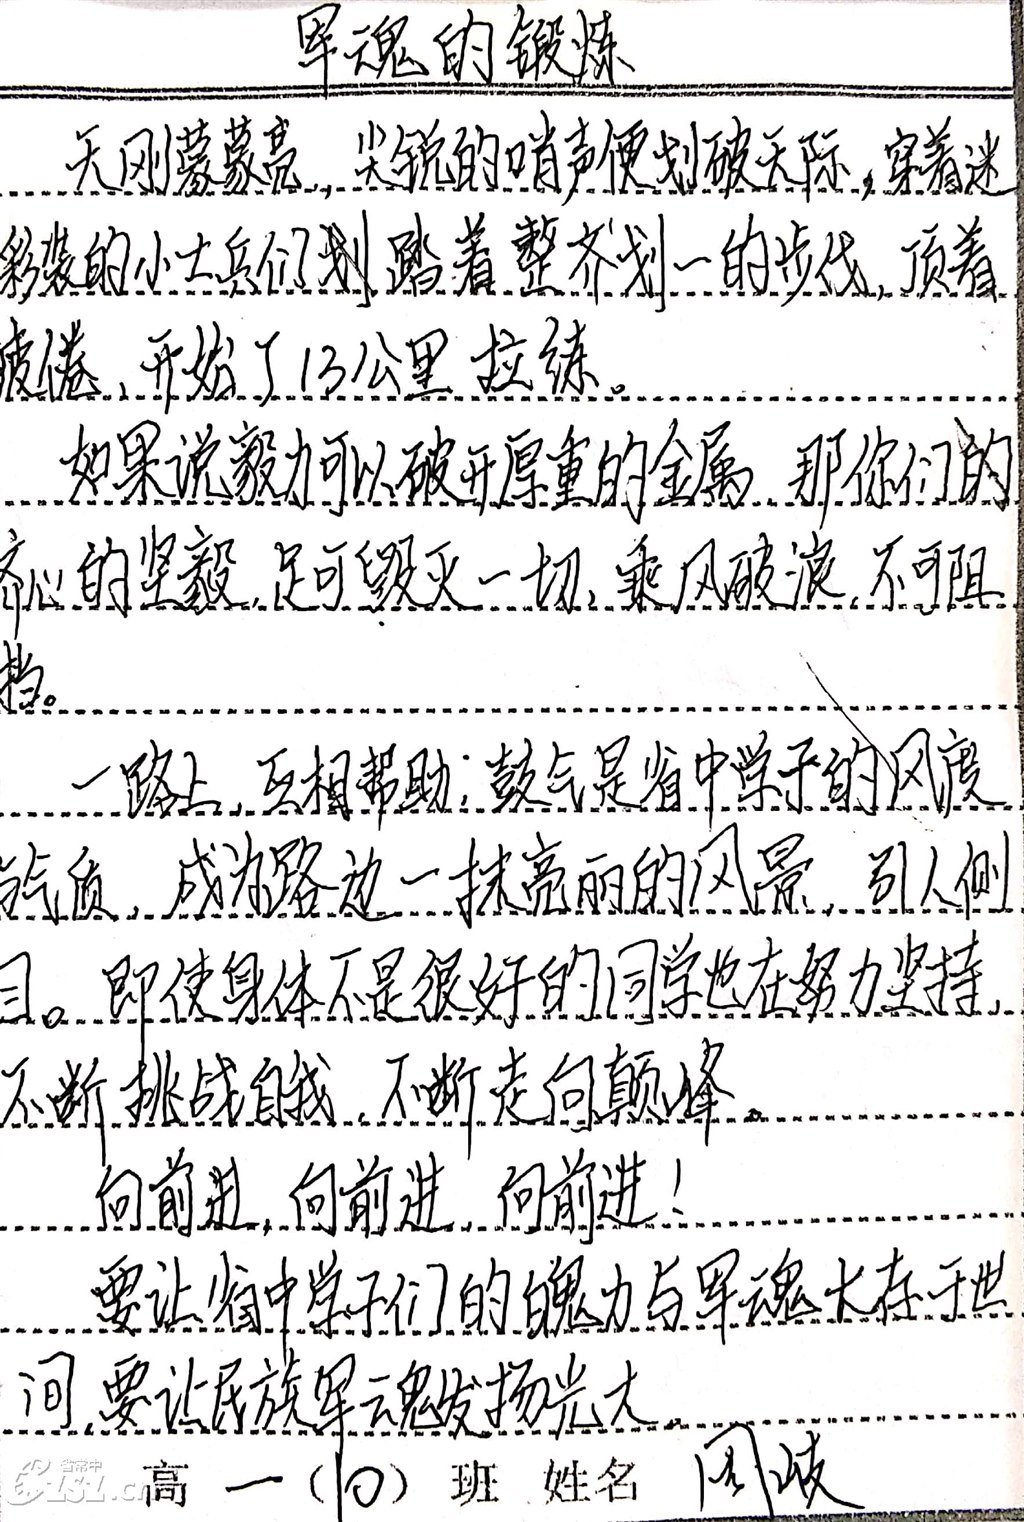 军魂的锻炼
天刚蒙蒙亮,尖锐的哨声便划破天际,穿着迷
彩装的小士兵们踏着整齐划一的步伐,顶着
疲倦,开始了13公里拉练。
如果说毅力可以破开厚重的金属,那你们的
齐心的坚毅,足可毁灭一切,乘风破浪,不可阻
挡。
一路上,互相帮助;鼓气是省中学子的风度
与气质,成为路边一抹亮丽的风景,引人侧
目。即使身体不是很好的同学也在努力坚持,
不断挑战自我,不断走向颠峰。
向前进,向前进,向前进!
要让省中学子们的魄力与军魂大存于世
间,要让民族军魂发扬光大。
高一(10)班 姓名 周歧
省常中